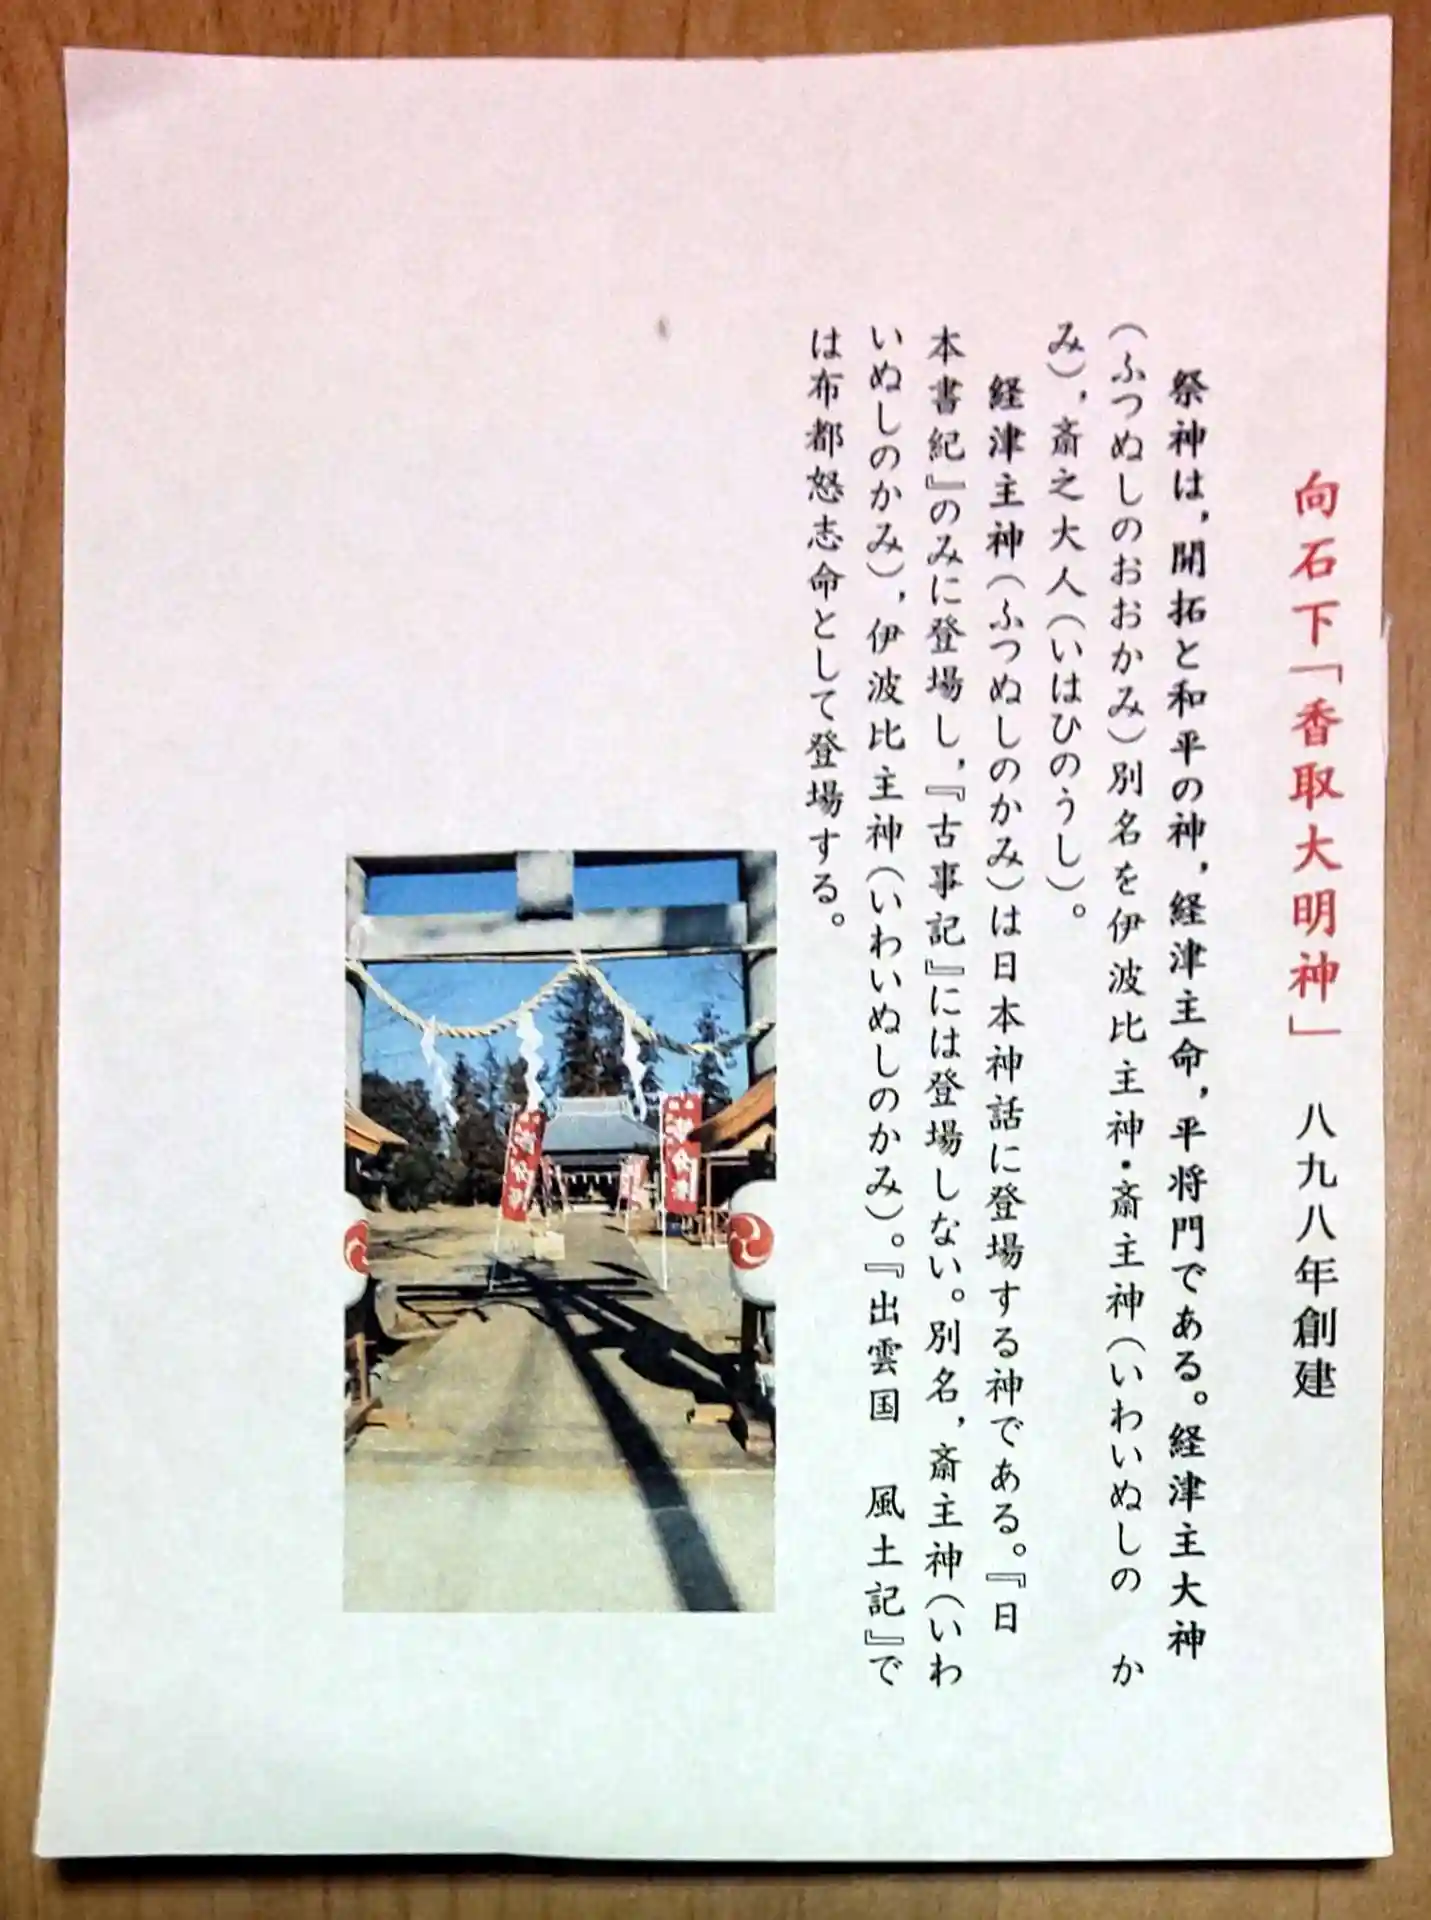 向石下「香取大明神」 八九八年創建
祭神は，開拓と和平の神，経津主命，平将門である。経津主大神
（ふつぬしのおおかみ）別名を伊波比主神・斎主神（いわいぬしの か
み），斎之大人（いはひのうし）。
経津主神（ふつぬしのかみ）は日本神話に登場する神である。『日
本書紀』のみに登場し，『古事記』には登場しない。別名，斎主神（いわ
いぬしのかみ），伊波比主神（いわいぬしのかみ）。『出雲国 風土記』で
は布都怒志命として登場する。